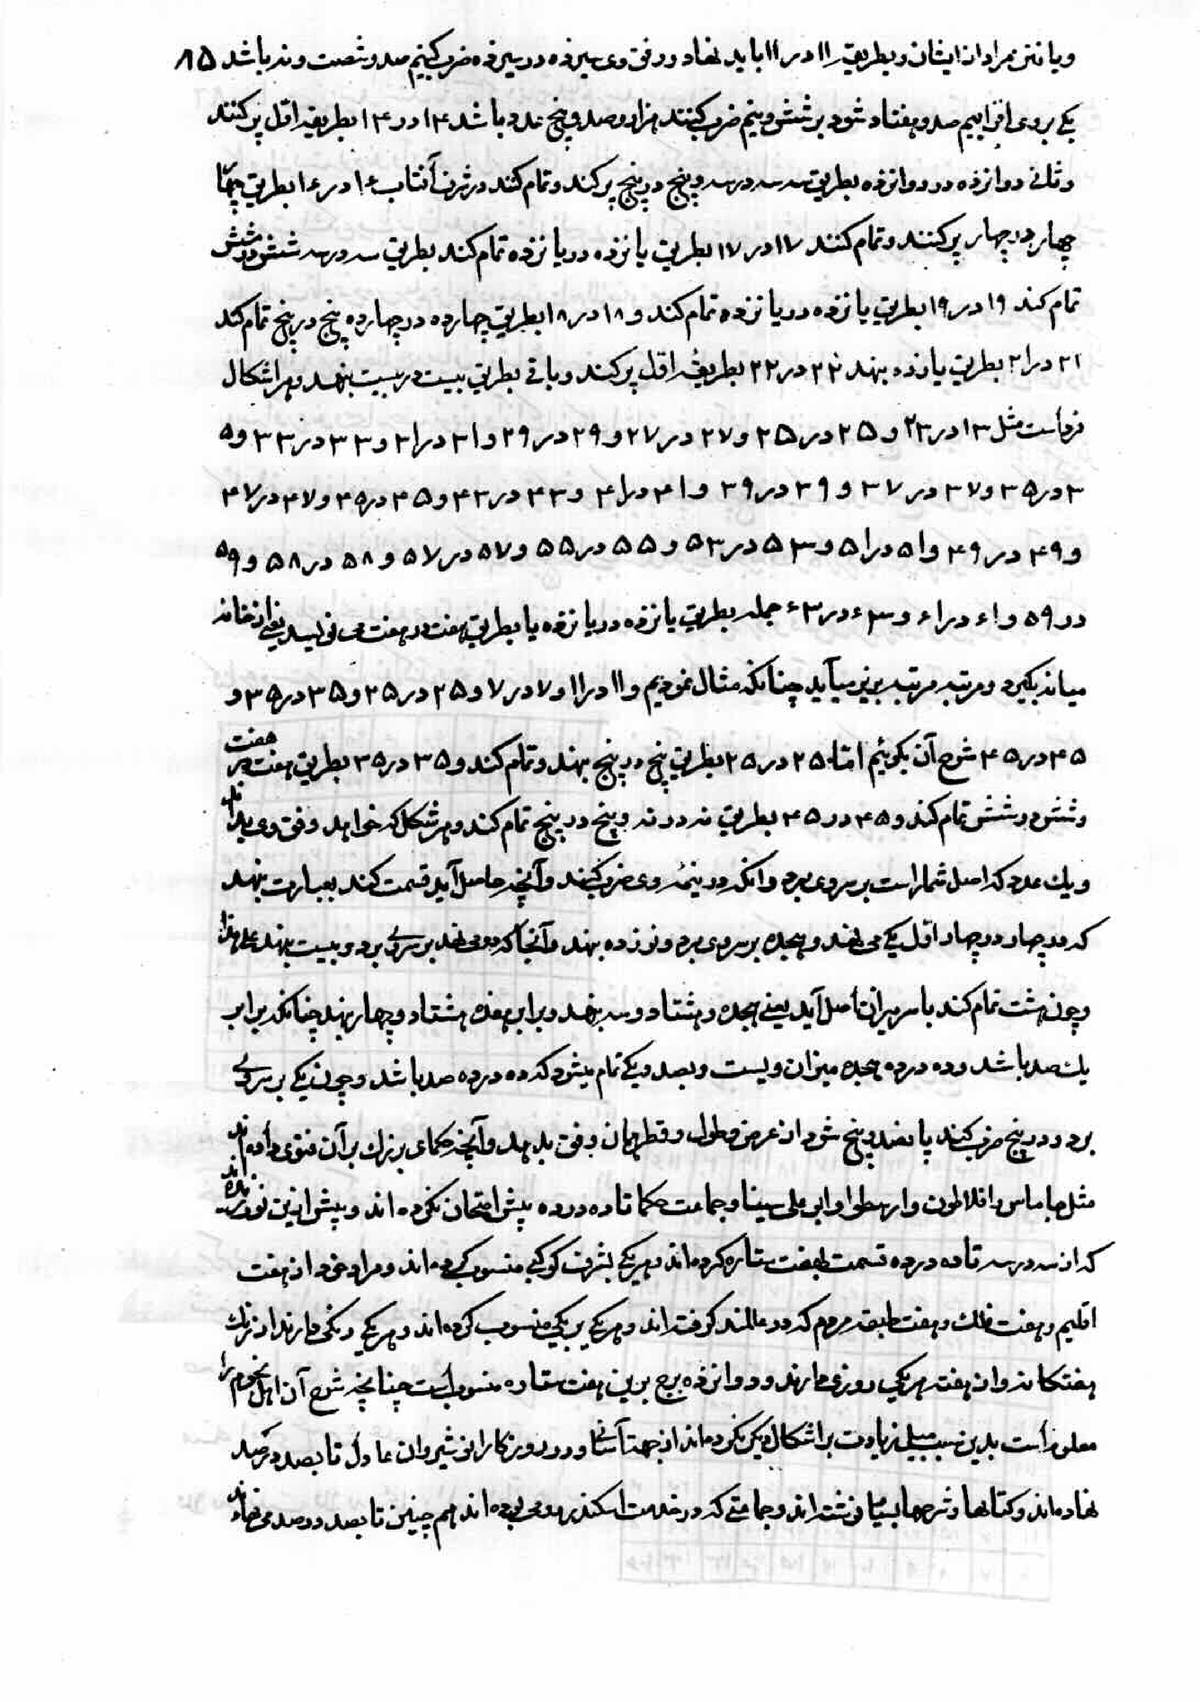 و یافتن مراد از ایشان و بطریقه ۱۱ در ۱۱ باید نهاد و وفق وی سیزده در سیزده ضرب کنیم صد و شصت و نه باشد ۸۵
یکی بر وی افزاییم صد و هفتاد شود بر شش و نیم ضرب کنند هزار و صد و پنج عدد باشد ۱۴ در ۱۴ بطریقه اقل پر کنند
و ثانی دوانزده در دوانزده بطریق سه در سه و پنج در پنج پر کند و تمام کند در شرف آفتاب ۱۶ در ۱۶ بطریق چهار
چهار در چهار پر کنند و تمام کنند ۱۷ در ۱۷ بطریق یانزده در یانزده تمام کند بطریق سه در سه شش در شش
تمام کند ۱۹ در ۱۹ بطریق یانزده در یانزده تمام کند و ۱۸ در ۱۸ بطریق چهارده در چهارده پنج در پنج تمام کند
۲۱ در ۲۱ بطریق یازده بنهد ۲۲ در ۲۲ بطریقه اقل پر کند و باقی بطریق بیست در بیست بنهد و هر اشکال
فرد است مثل ۲۳ در ۲۳ و ۲۵ در ۲۵ و ۲۷ در ۲۷ و ۲۹ در ۲۹ و ۳۱ در ۳۱ و ۳۳ در ۳۳ و ۵
۳ در ۳۵ و ۳۷ در ۳۷ و ۳۹ در ۳۹ و ۴۱ در ۴۱ و ۴۳ در ۴۳ و ۴۵ در ۴۵ و ۴۷ در ۴۷
و ۴۹ در ۴۹ و ۵۱ در ۵۱ و ۵۳ در ۵۳ و ۵۵ در ۵۵ و ۵۷ در ۵۷ و ۵۸ در ۵۸ و ۵۹
در ۵۹ و ۶۱ در ۶۱ و ۶۳ در ۶۳ جمله بطریق یانزده در یانزده یا بطریق هفت در هفت می نویسد یعنی از خانه
میانه بگیرد و مرتبه مرتبه بزیر می آید چنانکه مثال نمودیم و ۱۱ در ۱۱ و ۷ در ۷ و ۲۵ در ۲۵ و ۳۵ در ۳۵ و
۴۵ در ۴۵ شرح آن بگوئیم اما ۲۵ در ۲۵ بطریق پنج در پنج بنهد و تمام کند و ۳۵ در ۳۵ بطریق هفت در هفت
و شش در شش تمام کند و ۴۵ در ۴۵ بطریق نه در نه و پنج در پنج تمام کند و هر شکل که خواهد وفق وی بداند
و یک عدد که اصل شمار است بر سر وی برد و انکه در نیمه وی ضرب کنند و آنچه حاصل آید قسمت کند بعبارت بنهد
که در چهار در چهار اقل یکی می نهد و هجده بر سر وی برد و نوزده بنهد و آنجا که دو می نهد بر سر وی برد و بیست بنهد علی هذا
و چون هشت تمام کند با سر میزان اصل آید یعنی هجده و هشتاد و سه بنهد و برابر هفده هشتاد و چهار بنهد چنانکه برابر
یک صد باشد و ده در ده هجده میزان و بیست و بصد و یکی تمام میشود که ده در ده صد باشد و چون یکی بر سر وی
برد و در پنج ضرب کند پانصد و پنج شود از عرض و طول و قطر همان وفق بدهد و آنچه حکمای بزرگ بر آن فتوی داده اند
مثل جاماس و افلاطون و ارسطو و ابو علی سینا و جماعت حکما تا ده در ده پیش امتحان نکرده اند و پیش ازین نوزده اند
که از سه در سه تا ده در ده قسمت بهفت ستاره کرده اند و هر یکی بشرف کوکبی منسوب کرده اند و مراد خود از هفت
اقلیم و هفت فلک و هفت طبقه مردم که در عالمند گرفته اند و هر یکی بر یکی منسوب کرده اند و هر یکی رنگی دارند از رنگ
هفتگانه و از هفته هر یکی روزی دارند و دوانزده برج برین هفت ستاره منسوب است چنانچه شرح آن اهل نجوم را
معلوم است بدین سبب میل زیادت بر اشکال دیگر نکرده اند از جهت آسانی و در روزگار انوشیروان عادل تا بصد در صد
نهاده اند و کتابها و شرحها بسیار نوشته اند و جماعتی که در خدمت اسکندر رومی بوده اند هم چنین تا بصد در صد می نهادند